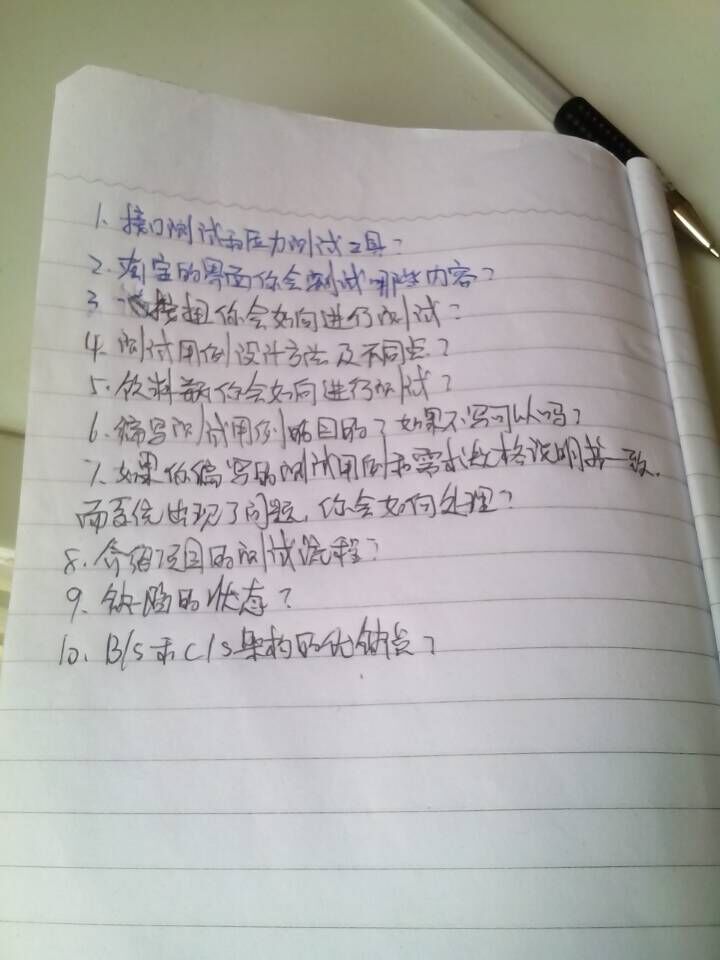 1. 接口测试和压力测试工具?
2. 淘宝的界面你会测试哪些内容?
3. 一个按钮你会如何进行测试?
4. 测试用例设计方法及不同点?
5. 饮料瓶你会如何进行测试?
6. 编写测试用例的目的?如果不写可以吗?
7. 如果你编写的测试用例和需求规格说明书一致,
而系统出现了问题,你会如何处理?
8. 介绍项目的测试流程?
9. 缺陷的状态?
10. B/S和C/S架构的优缺点?